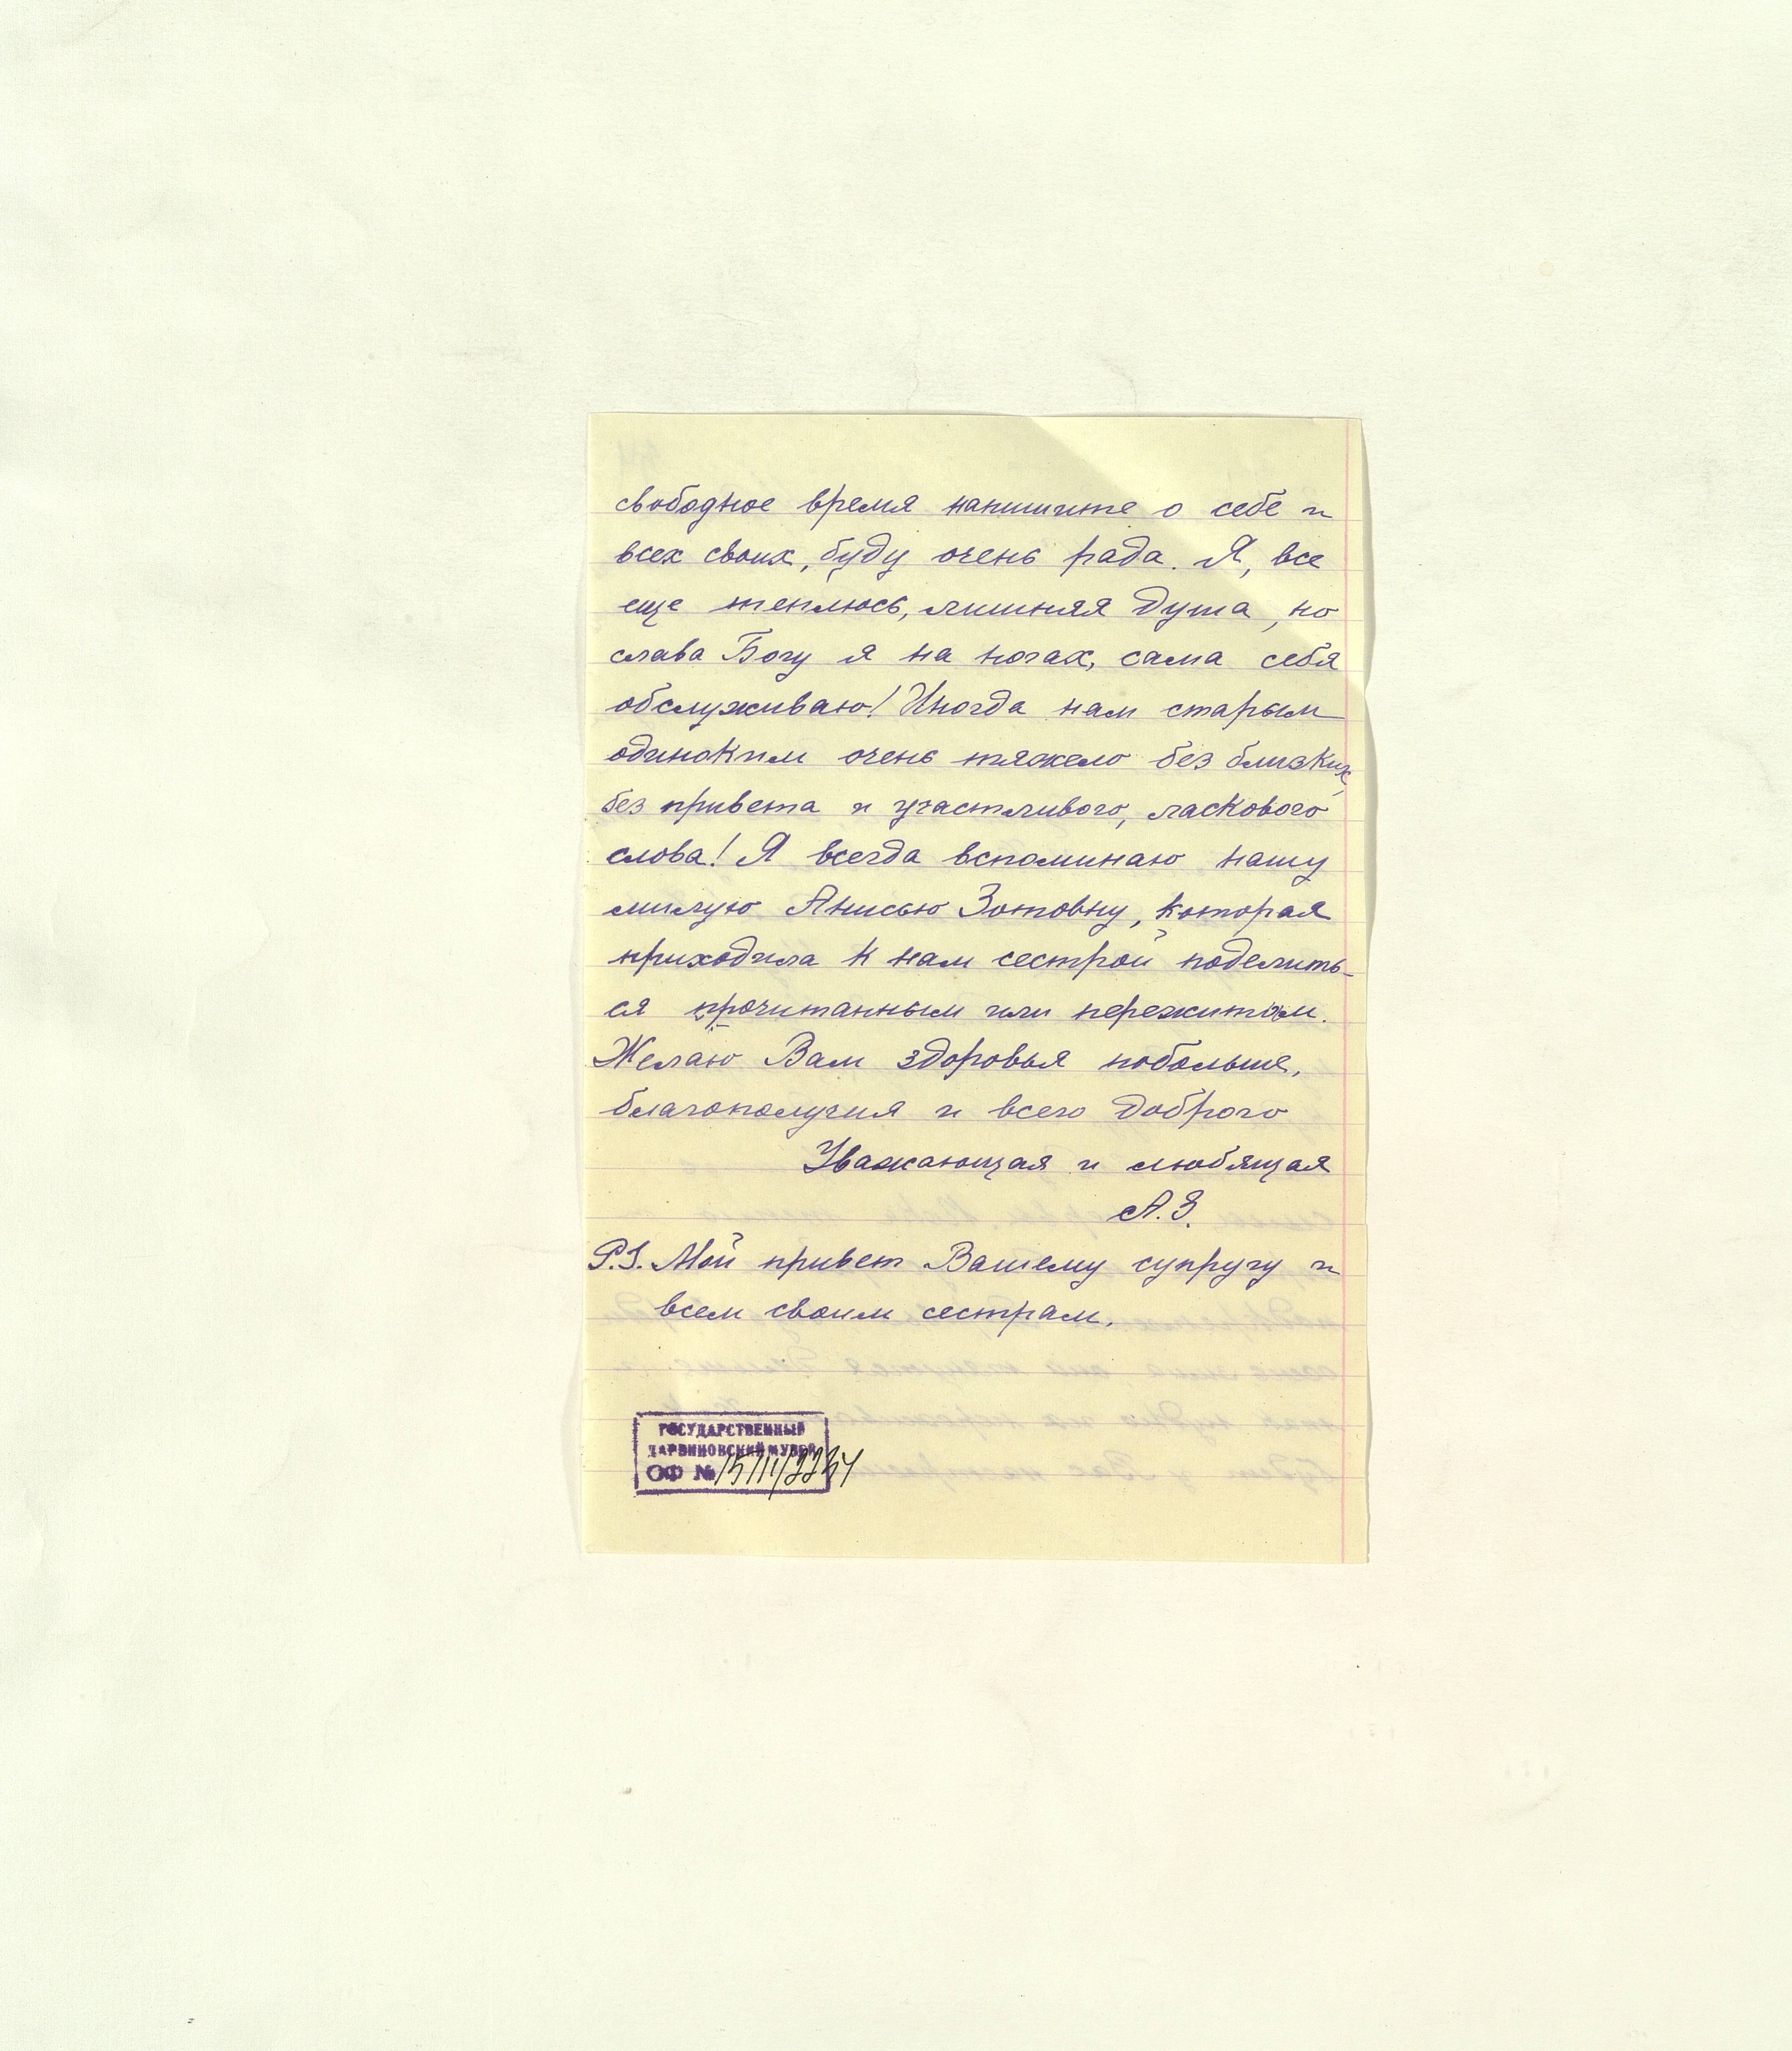 свободное время напишите о себе и
всех своих, буду очень рада. Я, все
еще теплюсь, лишняя душа, но
слава Богу я на ногах, сама себя
обслуживаю! Иногда нам старым
одиноким очень тяжело без близких,
без привета и участливого, ласкового
слова! Я всегда вспоминаю нашу
милую Анисью Зотовну, которая
приходила к нам сестрой поделить-
ся прочитанным или пережитом.
Желаю Вам здоровья побольше,
благополучия и всего доброго
Уважающая и любящая
А.З.
P.S. Мой привет Вашему супругу и
всем своим сестрам.
ГОСУДАРСТВЕННЫЙ
ДАРВИНОВСКИЙ МУЗЕЙ
ОФ №